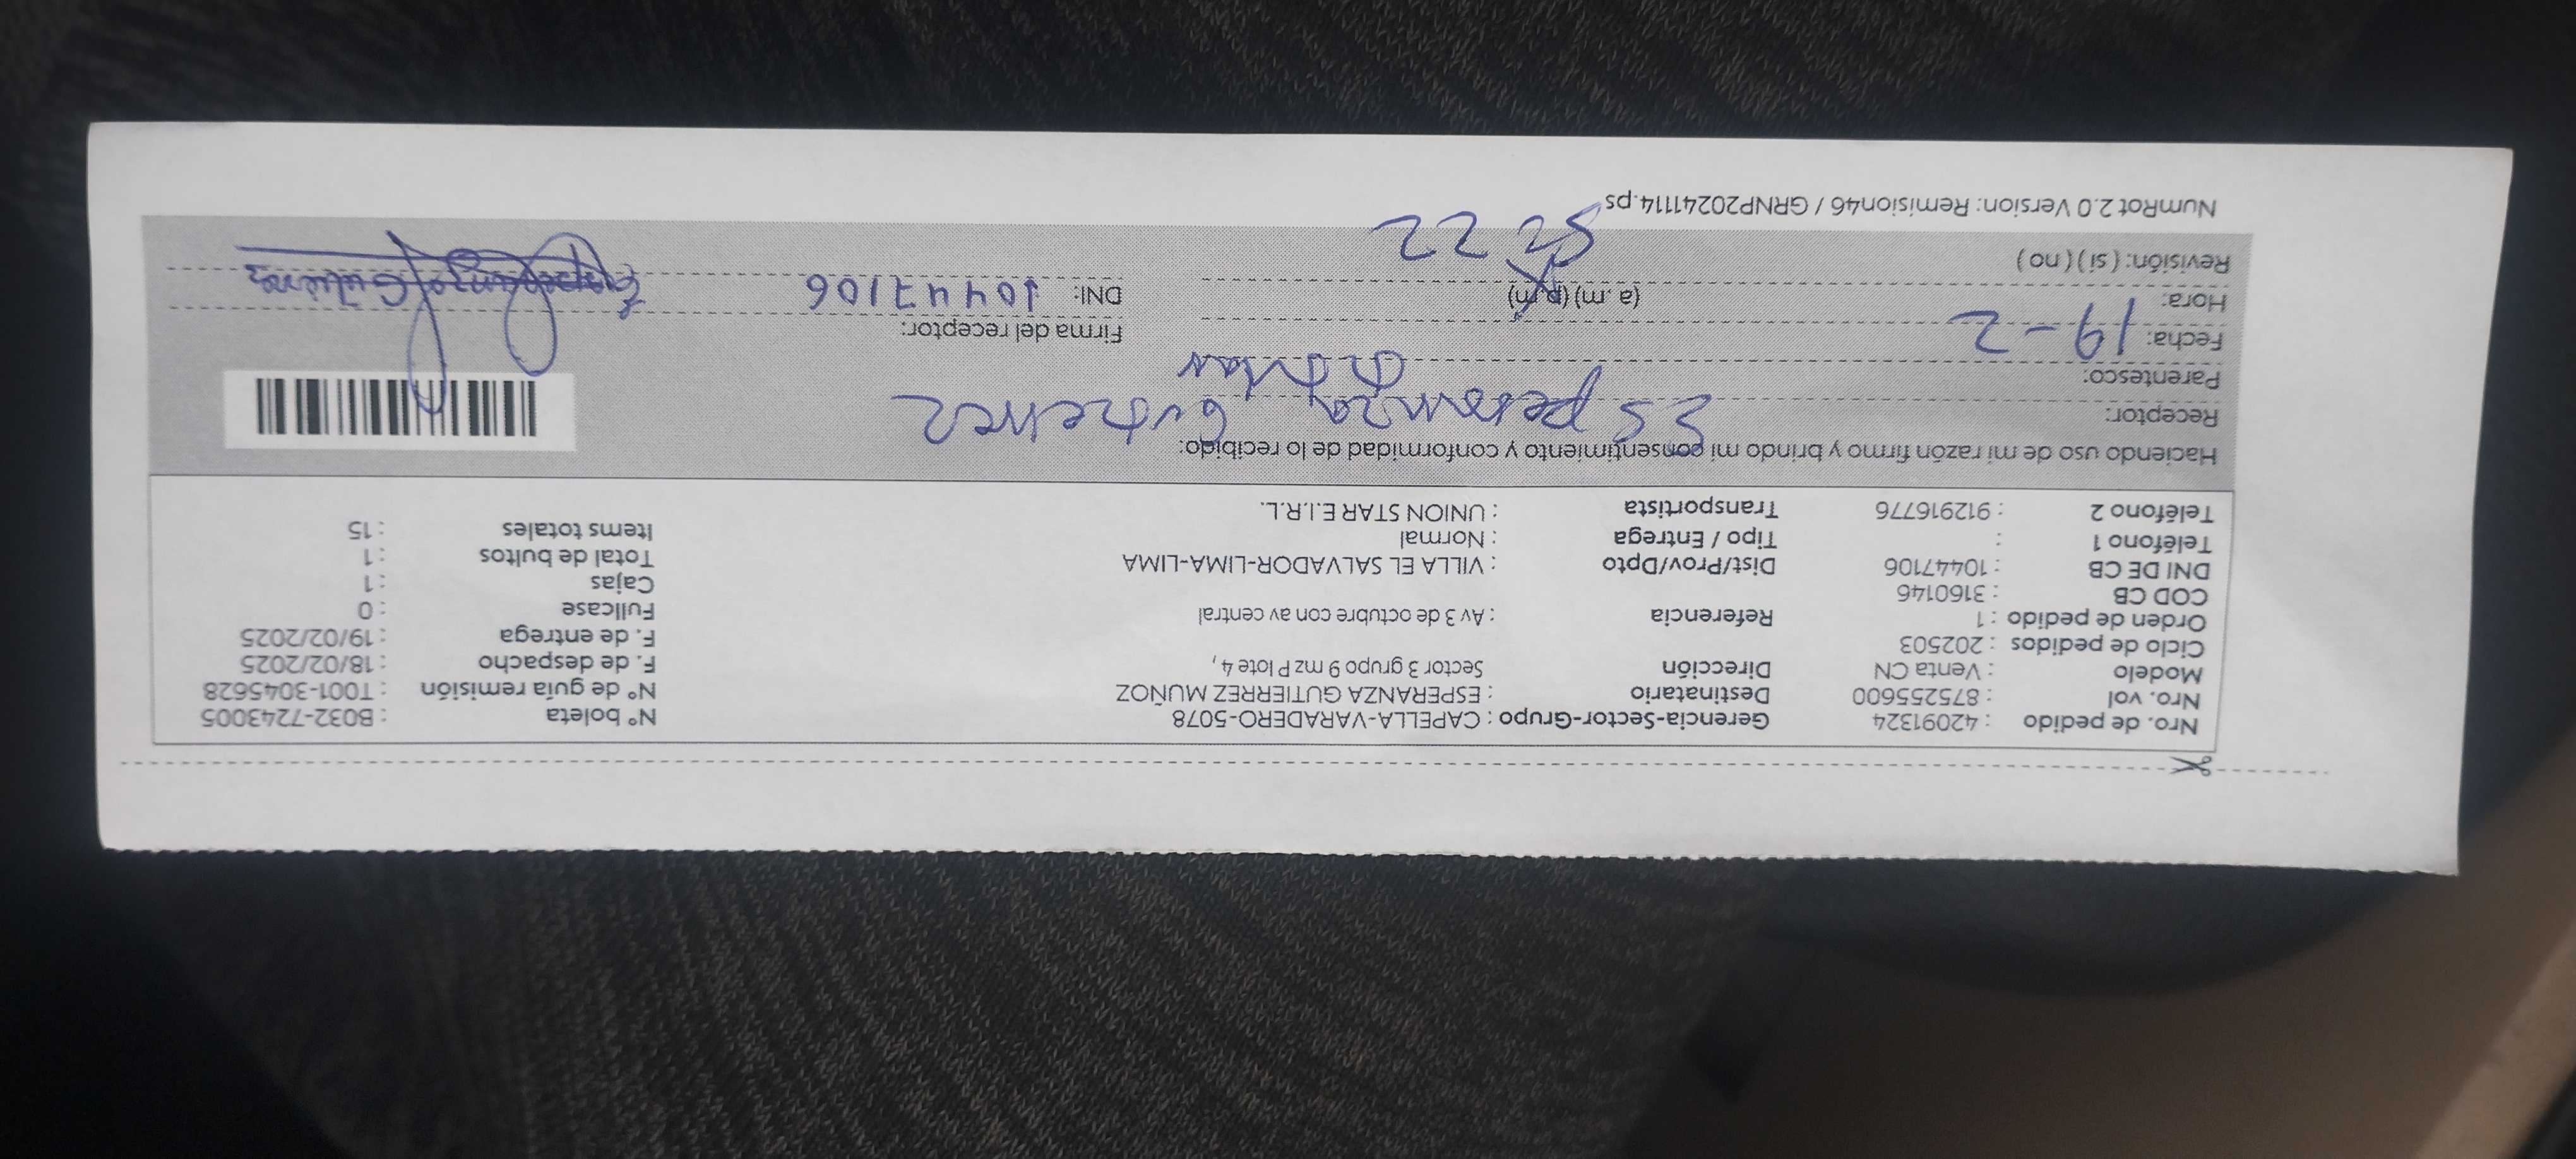 Nro. de pedido : 42091324 Gerencia-Sector-Grupo : CAPELLA-VARADERO-5078 N° boleta : B032-7243005
Nro. vol : 875255600 Destinatario : ESPERANZA GUTIERREZ MUÑOZ N° de guía remisión : T001-3045628
Modelo : Venta CN Dirección Sector 3 grupo 9 mz P lote 4 , F. de despacho : 18/02/2025
Ciclo de pedidos : 202503 F. de entrega : 19/02/2025
Orden de pedido : 1 Referencia : Av 3 de octubre con av central Fullcase : 0
COD CB : 3160146 Cajas : 1
DNI DE CB : 10447106 Dist/Prov/Dpto : VILLA EL SALVADOR-LIMA-LIMA Total de bultos : 1
Teléfono 1 : Tipo / Entrega : Normal Items totales : 15
Teléfono 2 : 912916776 Transportista : UNION STAR E.I.R.L.
Haciendo uso de mi razón firmo y brindo mi consentimiento y conformidad de lo recibido:
Receptor: Esperanza
Parentesco: titular
Fecha: 19-2 Firma del receptor:
Hora: (a .m) (p.m) DNI: 10447106
Revisión: ( si ) ( no )
NumRot 2.0 Version: Remision46 / GRNP20241114.ps